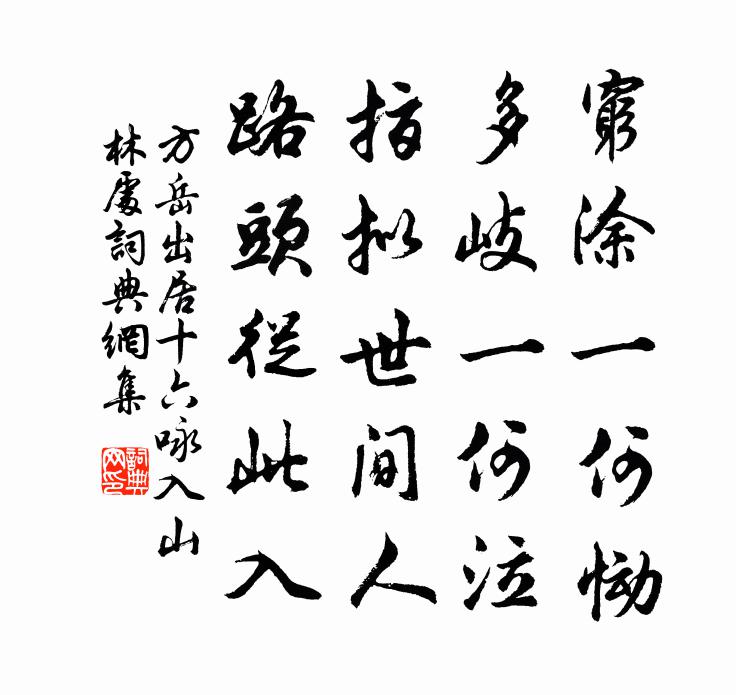 窮涂一何慟
多岐一何泣
指拟世間人
路頭從此入
方岳出居十六咏入山
林處詞典網集
詞典网印